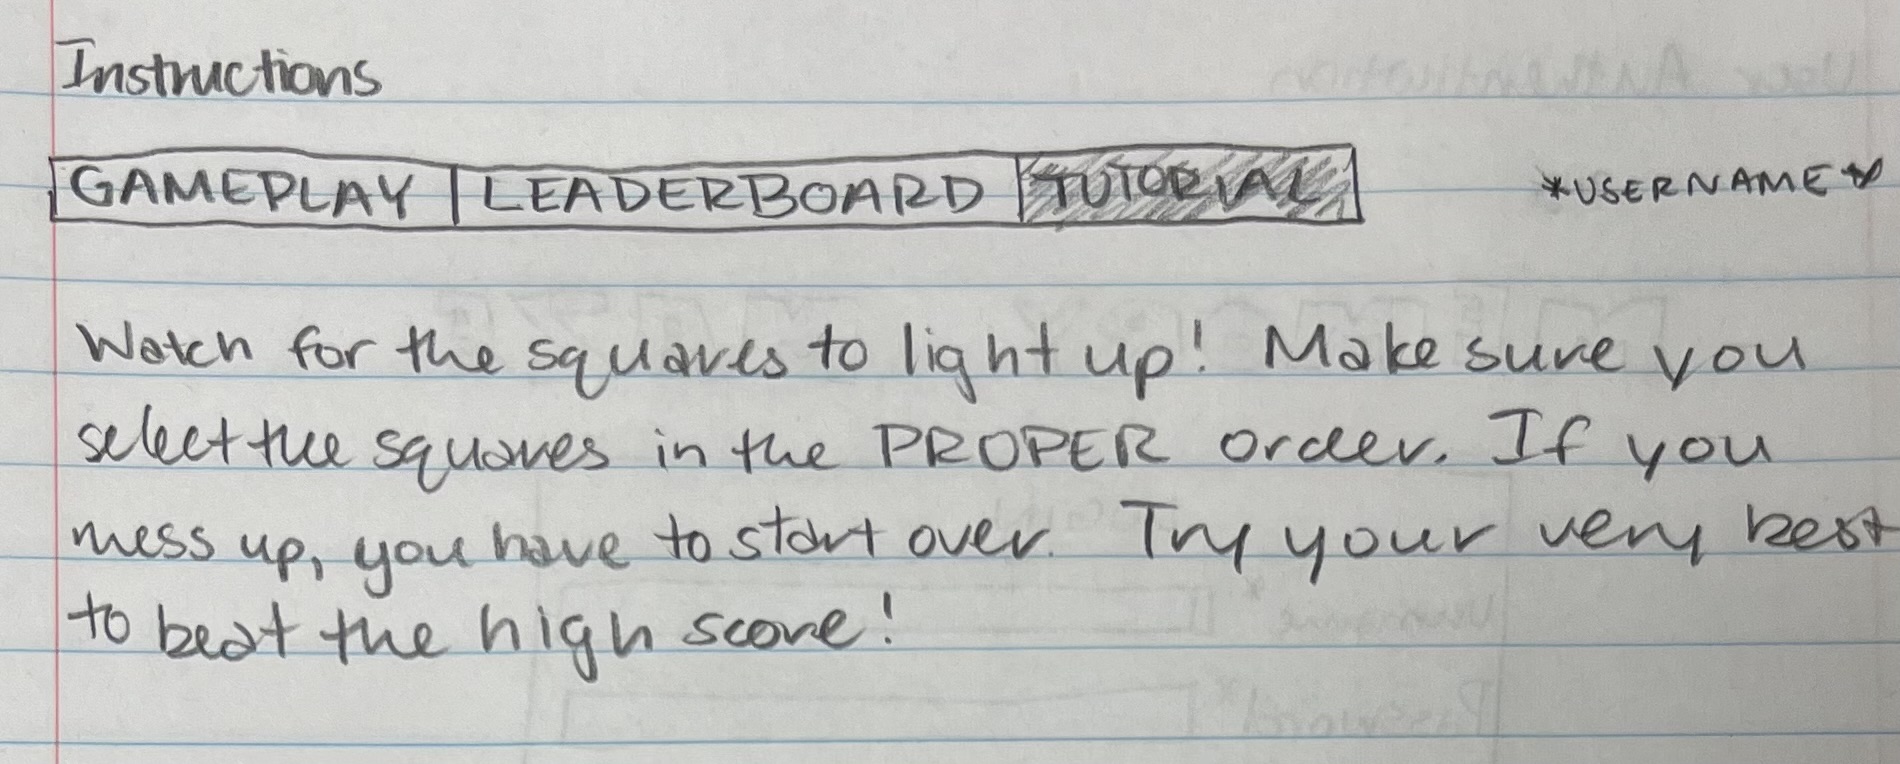 Instructions
GAMEPLAY LEADERBOARD TUTORIAL *USERNAME*
Watch for the squares to light up! Make sure you
select the squares in the PROPER order. If you
mess up, you have to start over. Try your very best
to beat the high score!